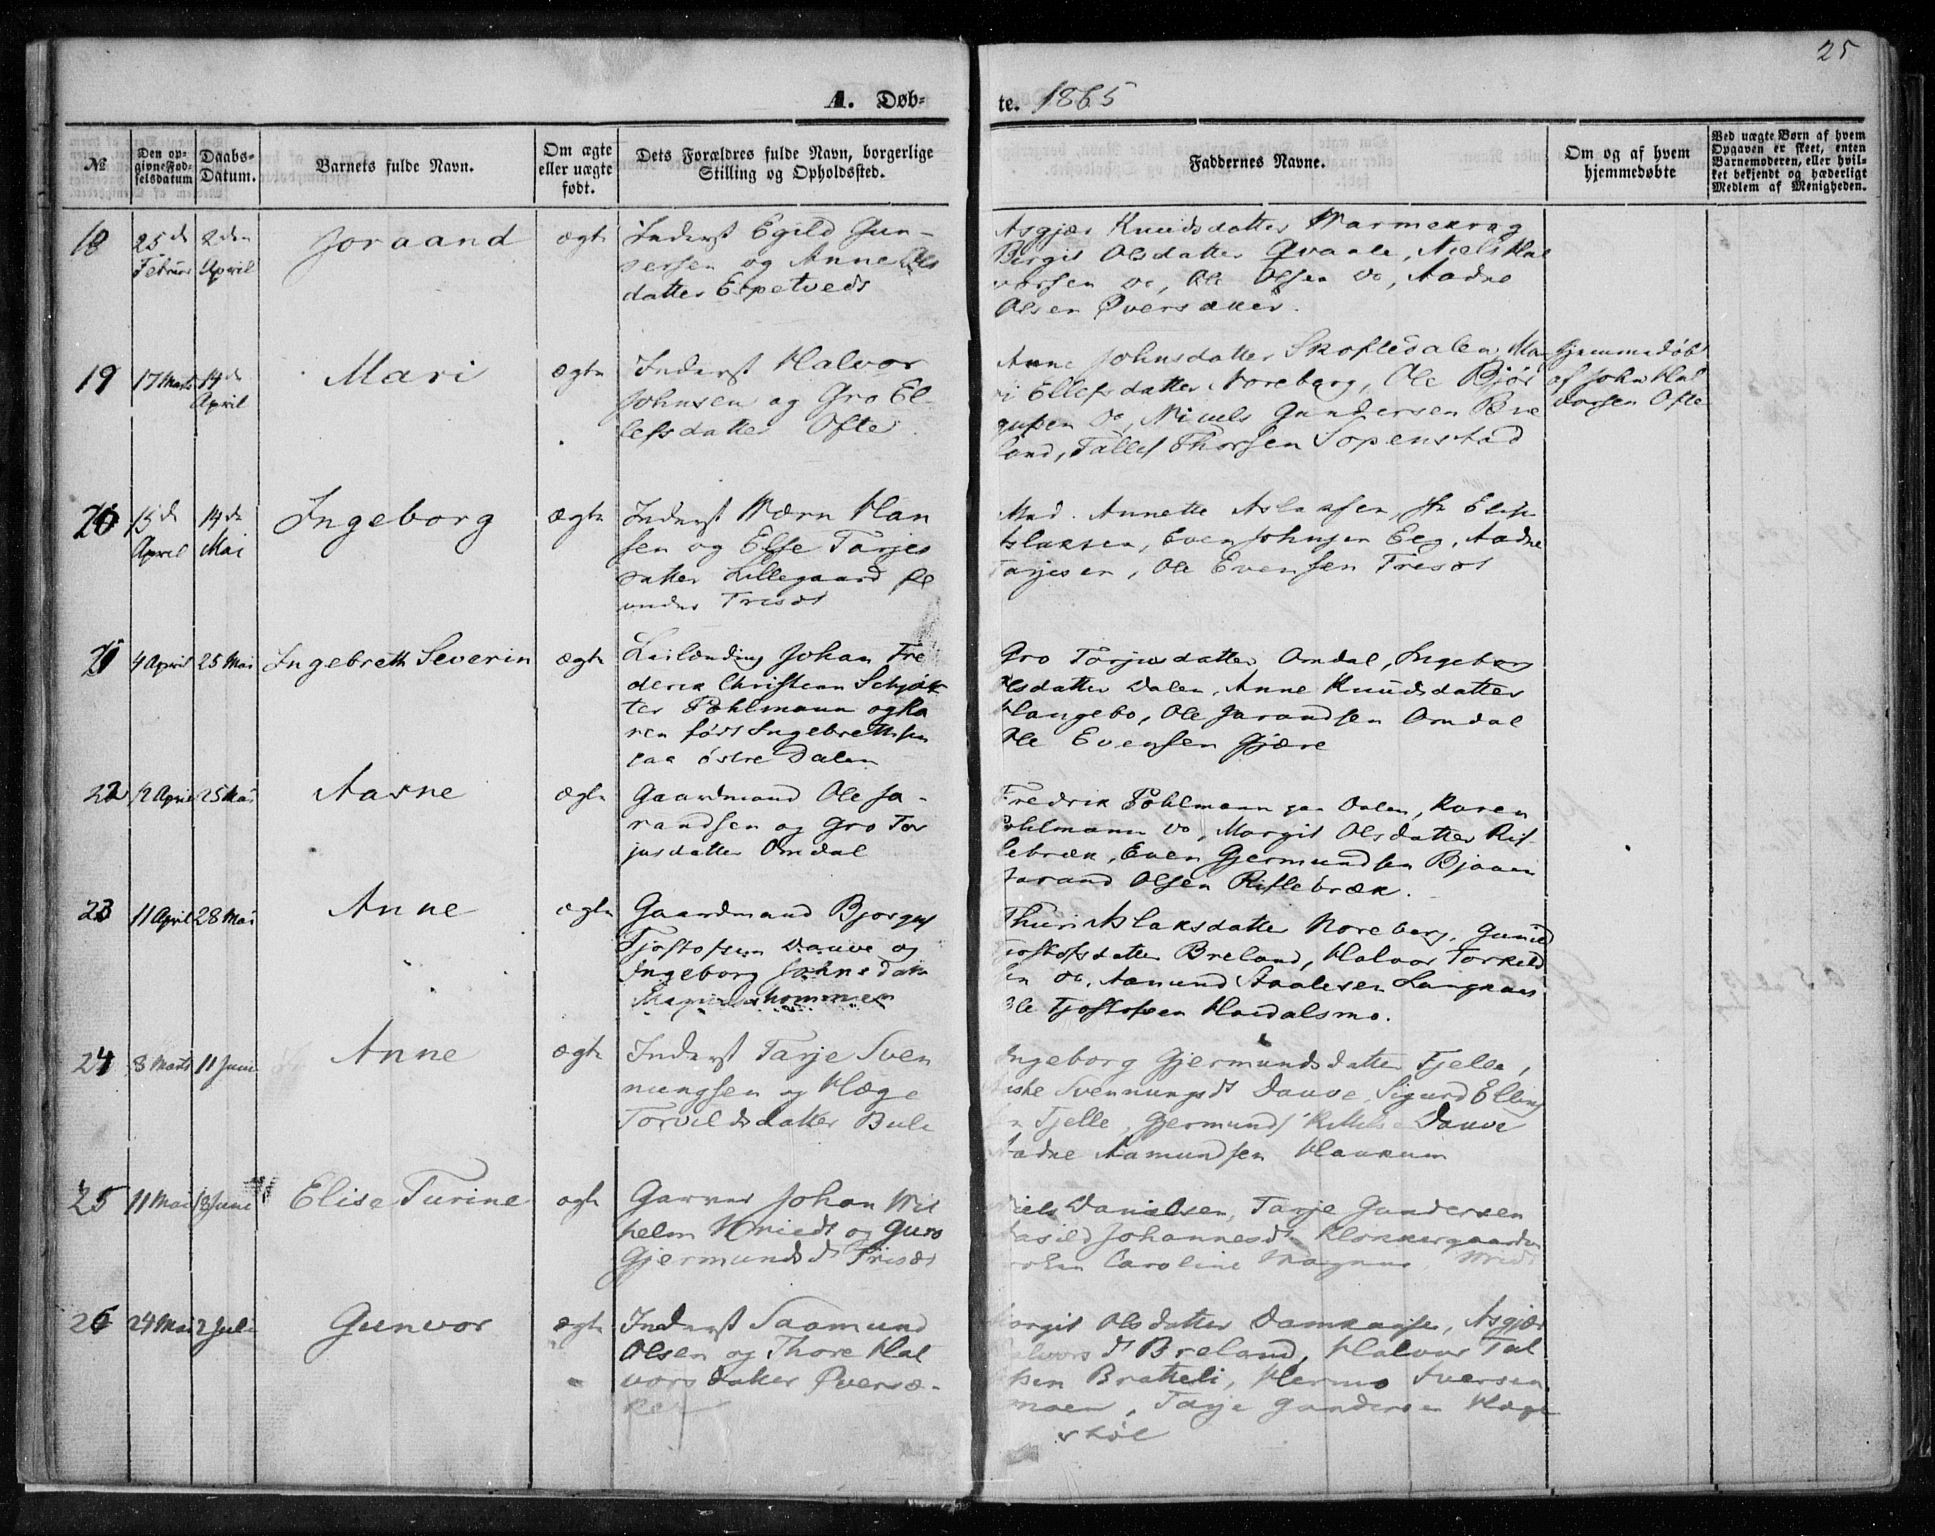 25
A. Døb-
te. 1865
№
Den op-
givne Fød-
selsdatum
Daabs-
Datum.
Barnets fulde Navn.
Om ægte
eller uægte
født.
Dets Forældres fulde Navn, borgerlige
Stilling og Opholdssted.
Faddernes Navne.
Om og af hvem
hjemmedøbte
Ved uægte Børn af hvem
Opgaven er skeet, enten
Barnemoderen, eller hvil-
ket bekjendt og hæderligt
Medlem af Menigheden.
18
25de
Februar
2den
April
Joraand
ægte
Inderst Egild Gun-
dersen og Anne Ols
datter Espetveds
Asgjær Knudsdatter
Birgit Olsdatter Qvaale, Niels Hal
vorsen do, Ole Olsen do, Aadne
Olsen Øversaker.
19
17 Marts
14de
April
Mari
ægte
Inderst Halvor
Johnsen og Gro El-
lefsdatter Ofte
Anne Johnsdatter Skoftedalen, Ma
ri Ellefsdatter Noreberg, Ole Bjør
gufsen do, Nicols Gundersen Bre
land, Tallef Thorsen Sopenstad
Hjemmedøbt
af John Hal
vorsen Ofte
20
15de
April
14de
Mai
Ingeborg
ægte
Inderst Wærn Han
sen og Else Tarjes
datter Lillegaard Pl
under Trisæt
Mad. Annette Aslaksen, Fr Elise
Aslaksen, Even Johnsen Eeg, Aadne
Tarjesen, Ole Evensen Trisæt
21
4 April
25 Mai
Ingebreth Severin
ægte
Leilending Johan Fre
derik Christian
ter Pohlmann og Ka
ren født Ingebrethsen
paa østre Dalen
Gro Torjusdatter Omdal, Ingeborg
Olsdatter Dalen, Anne Knudsdatter
Haugebo, Ole Jarandsen Omdal
Ole Evensen Gjære
22
12 April
25 Mai
Aasne
ægte
Gaardmand Ole Ja-
randsen og Gro Tor
jusdatter Omdal
Fredrik Pohlmann paa Dalen, Karen
Pohlmann do, Margit Olsdatter Rif-
lebræk, Even Gjermundsen Bjaaen
Jarand Olsen Riflebræk.
23
11 April
28 Mai
Anne
ægte
Gaardmand Bjørguf
Tjostofsen Dauve og
Ingeborg Johnsdatter
Thuri Aslaksdatter Noreberg, Gunild
Tjostofsdatter Breland, Halvor Torkild
sen do, Aamund Staalesen
Ole Tjostofsen Haidalsmo.
24
8 Marts
11 Juni
Anne
ægte
Inderst Tarje Sven
nungsen og Hæge
Torvildsdatter Buli
Ingeborg Gjermundsdatter Fjelle,
Svennungsdt Dauve, Sigurd Elling
sen Fjelle, Gjermund Dauve
Aadne Aamundsen Haukum
25
11 Mai
18 Juni
Elise Turine
ægte
Garver Johan Wil
helm Wriedt og Guro
Gjermundsdt Trisæt
Niels Danielsen, Tarje Gundersen
Aasild Johannesdt Klokkergaarden
Caroline Magnus Wriedt
26
24 Mai
2 Juli
Gunvor
ægte
Inderst Saamund
Olsen og Thore Hal
vorsdatter Øversæ-
ker
Margit Olsdatter Damkaase, Asgjær
Halvorsdt Breland, Halvor Tal
lefsen Bratteli, Hermo Iversen
moen, Tarje Gundersen Hæge
støl